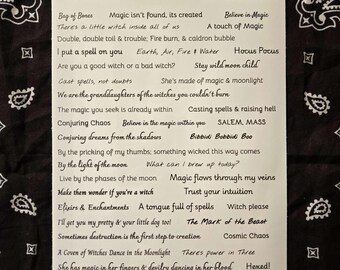 Bag of Bones Magic isn't found, its created Believe in Magic
There's a little witch inside all of us A touch of Magic
Double, double toil & trouble; Fire burn, & caldron bubble
I put a spell on you Earth, Air, Fire & Water Hocus Pocus
Are you a good witch or a bad witch? Stay wild moon child
Cast spells, not doubts She's made of magic & moonlight
We are the granddaughters of the witches you couldn't burn
The magic you seek is already within Casting spells & raising hell
Conjuring Chaos Believe in the magic within you SALEM, MASS
Conjuring dreams from the shadows Bibbidi Bobbidi Boo
By the pricking of my thumbs; something wicked this way comes
By the light of the moon What can I brew up today?
Live by the phases of the moon Magic flows through my veins
Make them wonder if you're a witch Trust your intuition
Elixirs & Enchantments A tongue full of spells Witch please
I'll get you my pretty & your little dog too! The Mark of the Beast
Sometimes destruction is the first step to creation Cosmic Chaos
A Coven of Witches Dance in the Moonlight There's power in Three
She has magic in her fingers & devilry dancing in her blood Hexed!